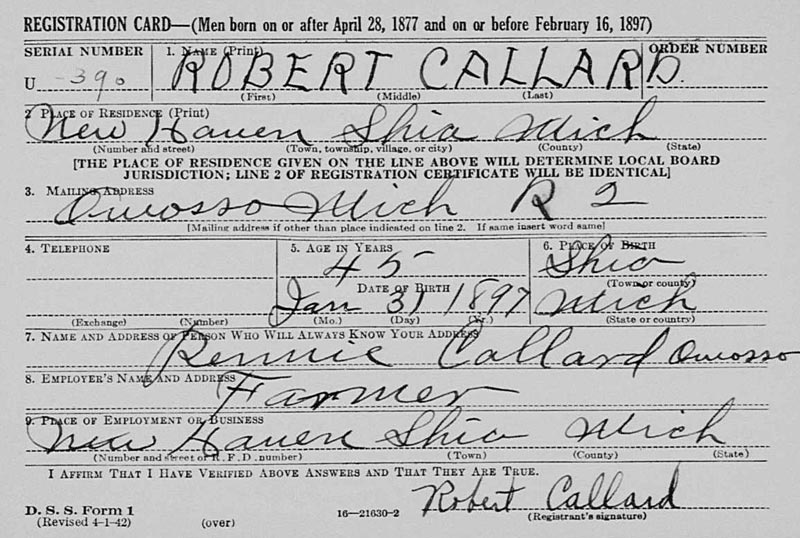 REGISTRATION CARD—(Men born on or after April 28, 1877 and on or before February 16, 1897)
SERIAL NUMBER 1. NAME (Print) ORDER NUMBER
U 390 ROBERT CALLARD.
(First) (Middle) (Last)
2 PLACE OF RESIDENCE (Print)
New Haven Shia Mich
(Number and street) (Town, township, village, or city) (County) (State)
[THE PLACE OF RESIDENCE GIVEN ON THE LINE ABOVE WILL DETERMINE LOCAL BOARD
JURISDICTION; LINE 2 OF REGISTRATION CERTIFICATE WILL BE IDENTICAL]
3. MAILING ADDRESS
Owosso Mich R 2
[Mailing address if other than place indicated on line 2. If same insert word same]
4. TELEPHONE 5. AGE IN YEARS 6. PLACE OF BIRTH
45 Shia
DATE OF BIRTH (Town or county)
Jan 31 1897 Mich
(Exchange) (Number) (Mo.) (Day) (Yr.) (State or country)
7. NAME AND ADDRESS OF PERSON WHO WILL ALWAYS KNOW YOUR ADDRESS
Rennie Callard Owosso
8. EMPLOYER'S NAME AND ADDRESS
Farmer
9. PLACE OF EMPLOYMENT OR BUSINESS
New Haven Shia Mich
(Number and street or R. F. D. number) (Town) (County) (State)
I AFFIRM THAT I HAVE VERIFIED ABOVE ANSWERS AND THAT THEY ARE TRUE.
Robert Callard
D. S. S. Form 1
(Revised 4-1-42) (over) 16—21630-2 (Registrant's signature)